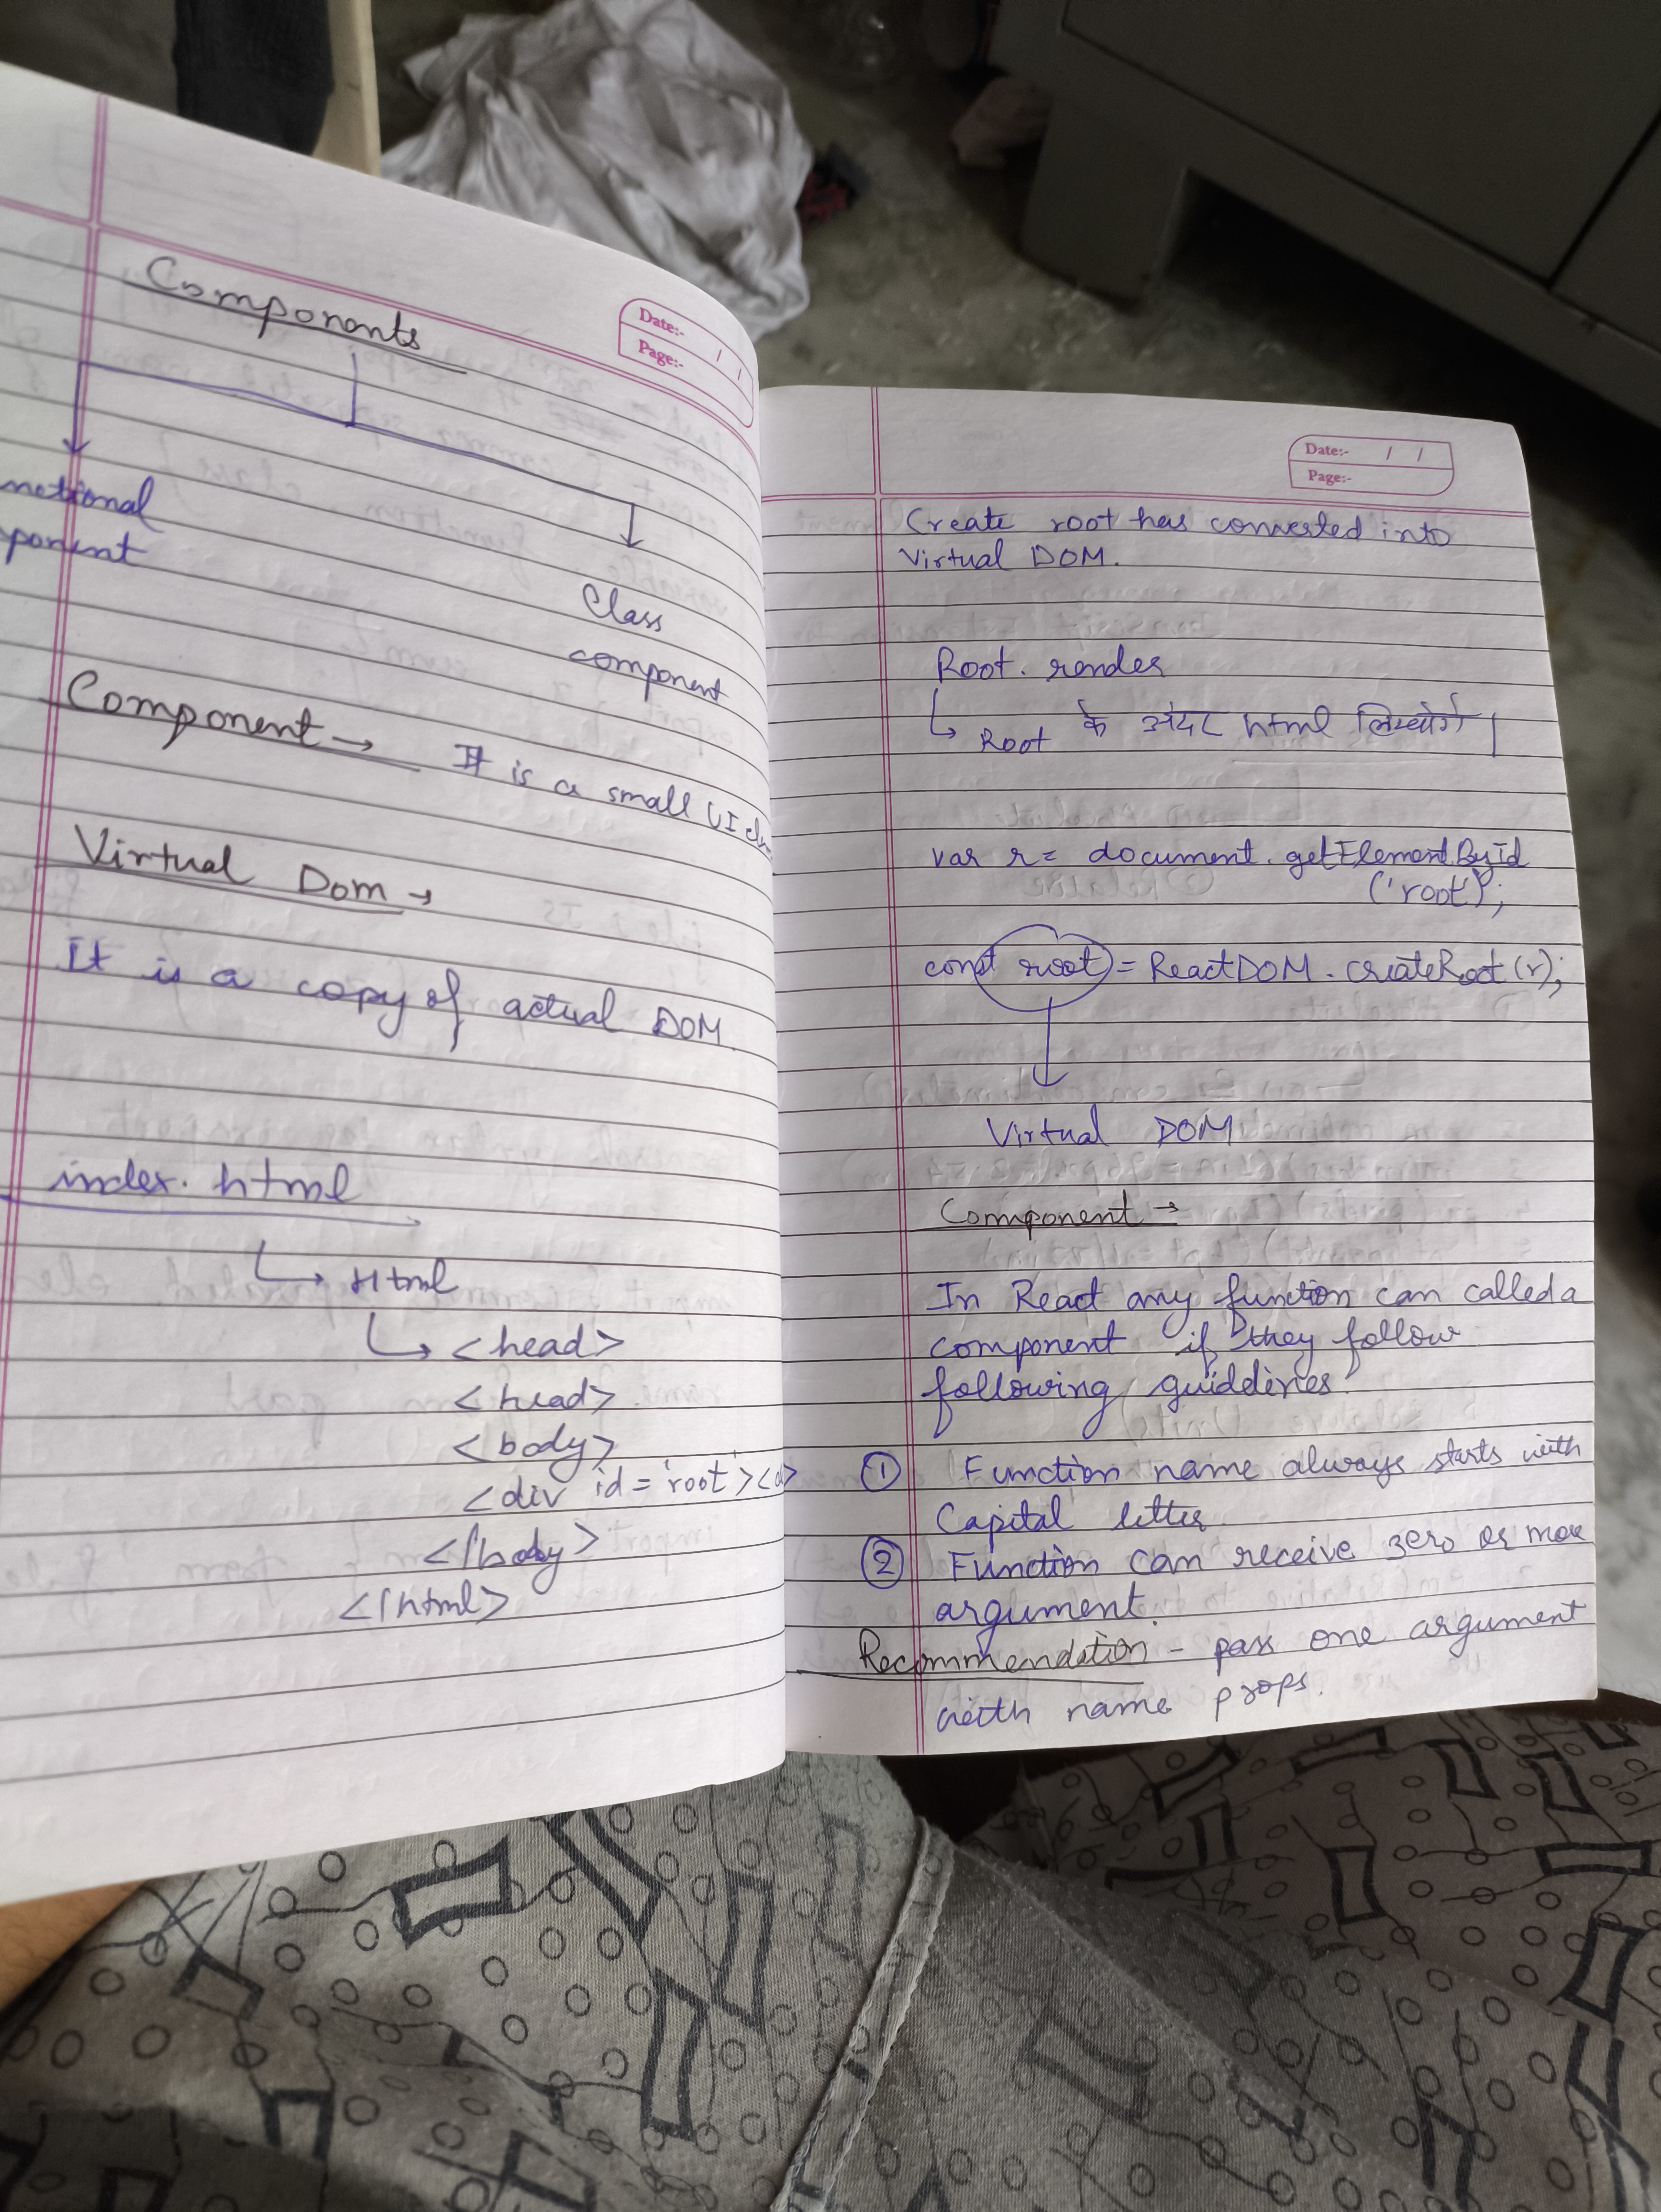 Components
Date:-
Page:-
nctional
ponent
Class
component
Component →
It is a small UI
Virtual Dom →
It is a copy of actual DOM
index. html
Html
<head>
<head>
<body>
<div id = 'root'><
</body>
</html>
Date:- / /
Page:-
Create root has converted into
Virtual DOM.
Root. render
Root के अंदर html लिखोगे |
var r = document. getElementById
('root');
const root = ReactDOM. createRoot (r);
Virtual DOM
Component →
In React any function can called a
component if they follow
following guidelines.
① Function name always starts with
Capital letter
② Function can receive zero or more
argument.
Recommendation - pass one argument
with name props.